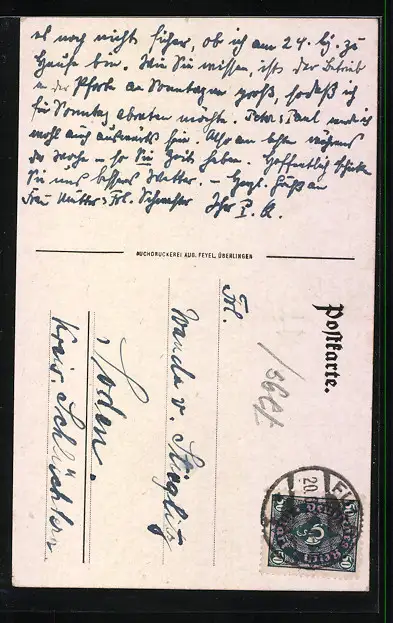 es noch nicht sicher, ob ich am 24. bj. zu
Hause bin. Wie Sie wissen, ist der Betrieb
in der Pforte an Sonntagen groß, sodaß ich
für Sonntag abraten möchte. Peter & Paul werde ich
wohl auch auswärts sein. Also am besten während
der Woche – so Sie Zeit haben. Hoffentlich schicken
Sie uns besseres Wetter. – Grüß an
Frau Mutter & Frl. Schwester Ihr
BUCHDRUCKEREI AUG. FEYEL, ÜBERLINGEN
Postkarte.
Frl.
Wanda v. Stieglitz
Soden.
Kreis. Schlüchtern